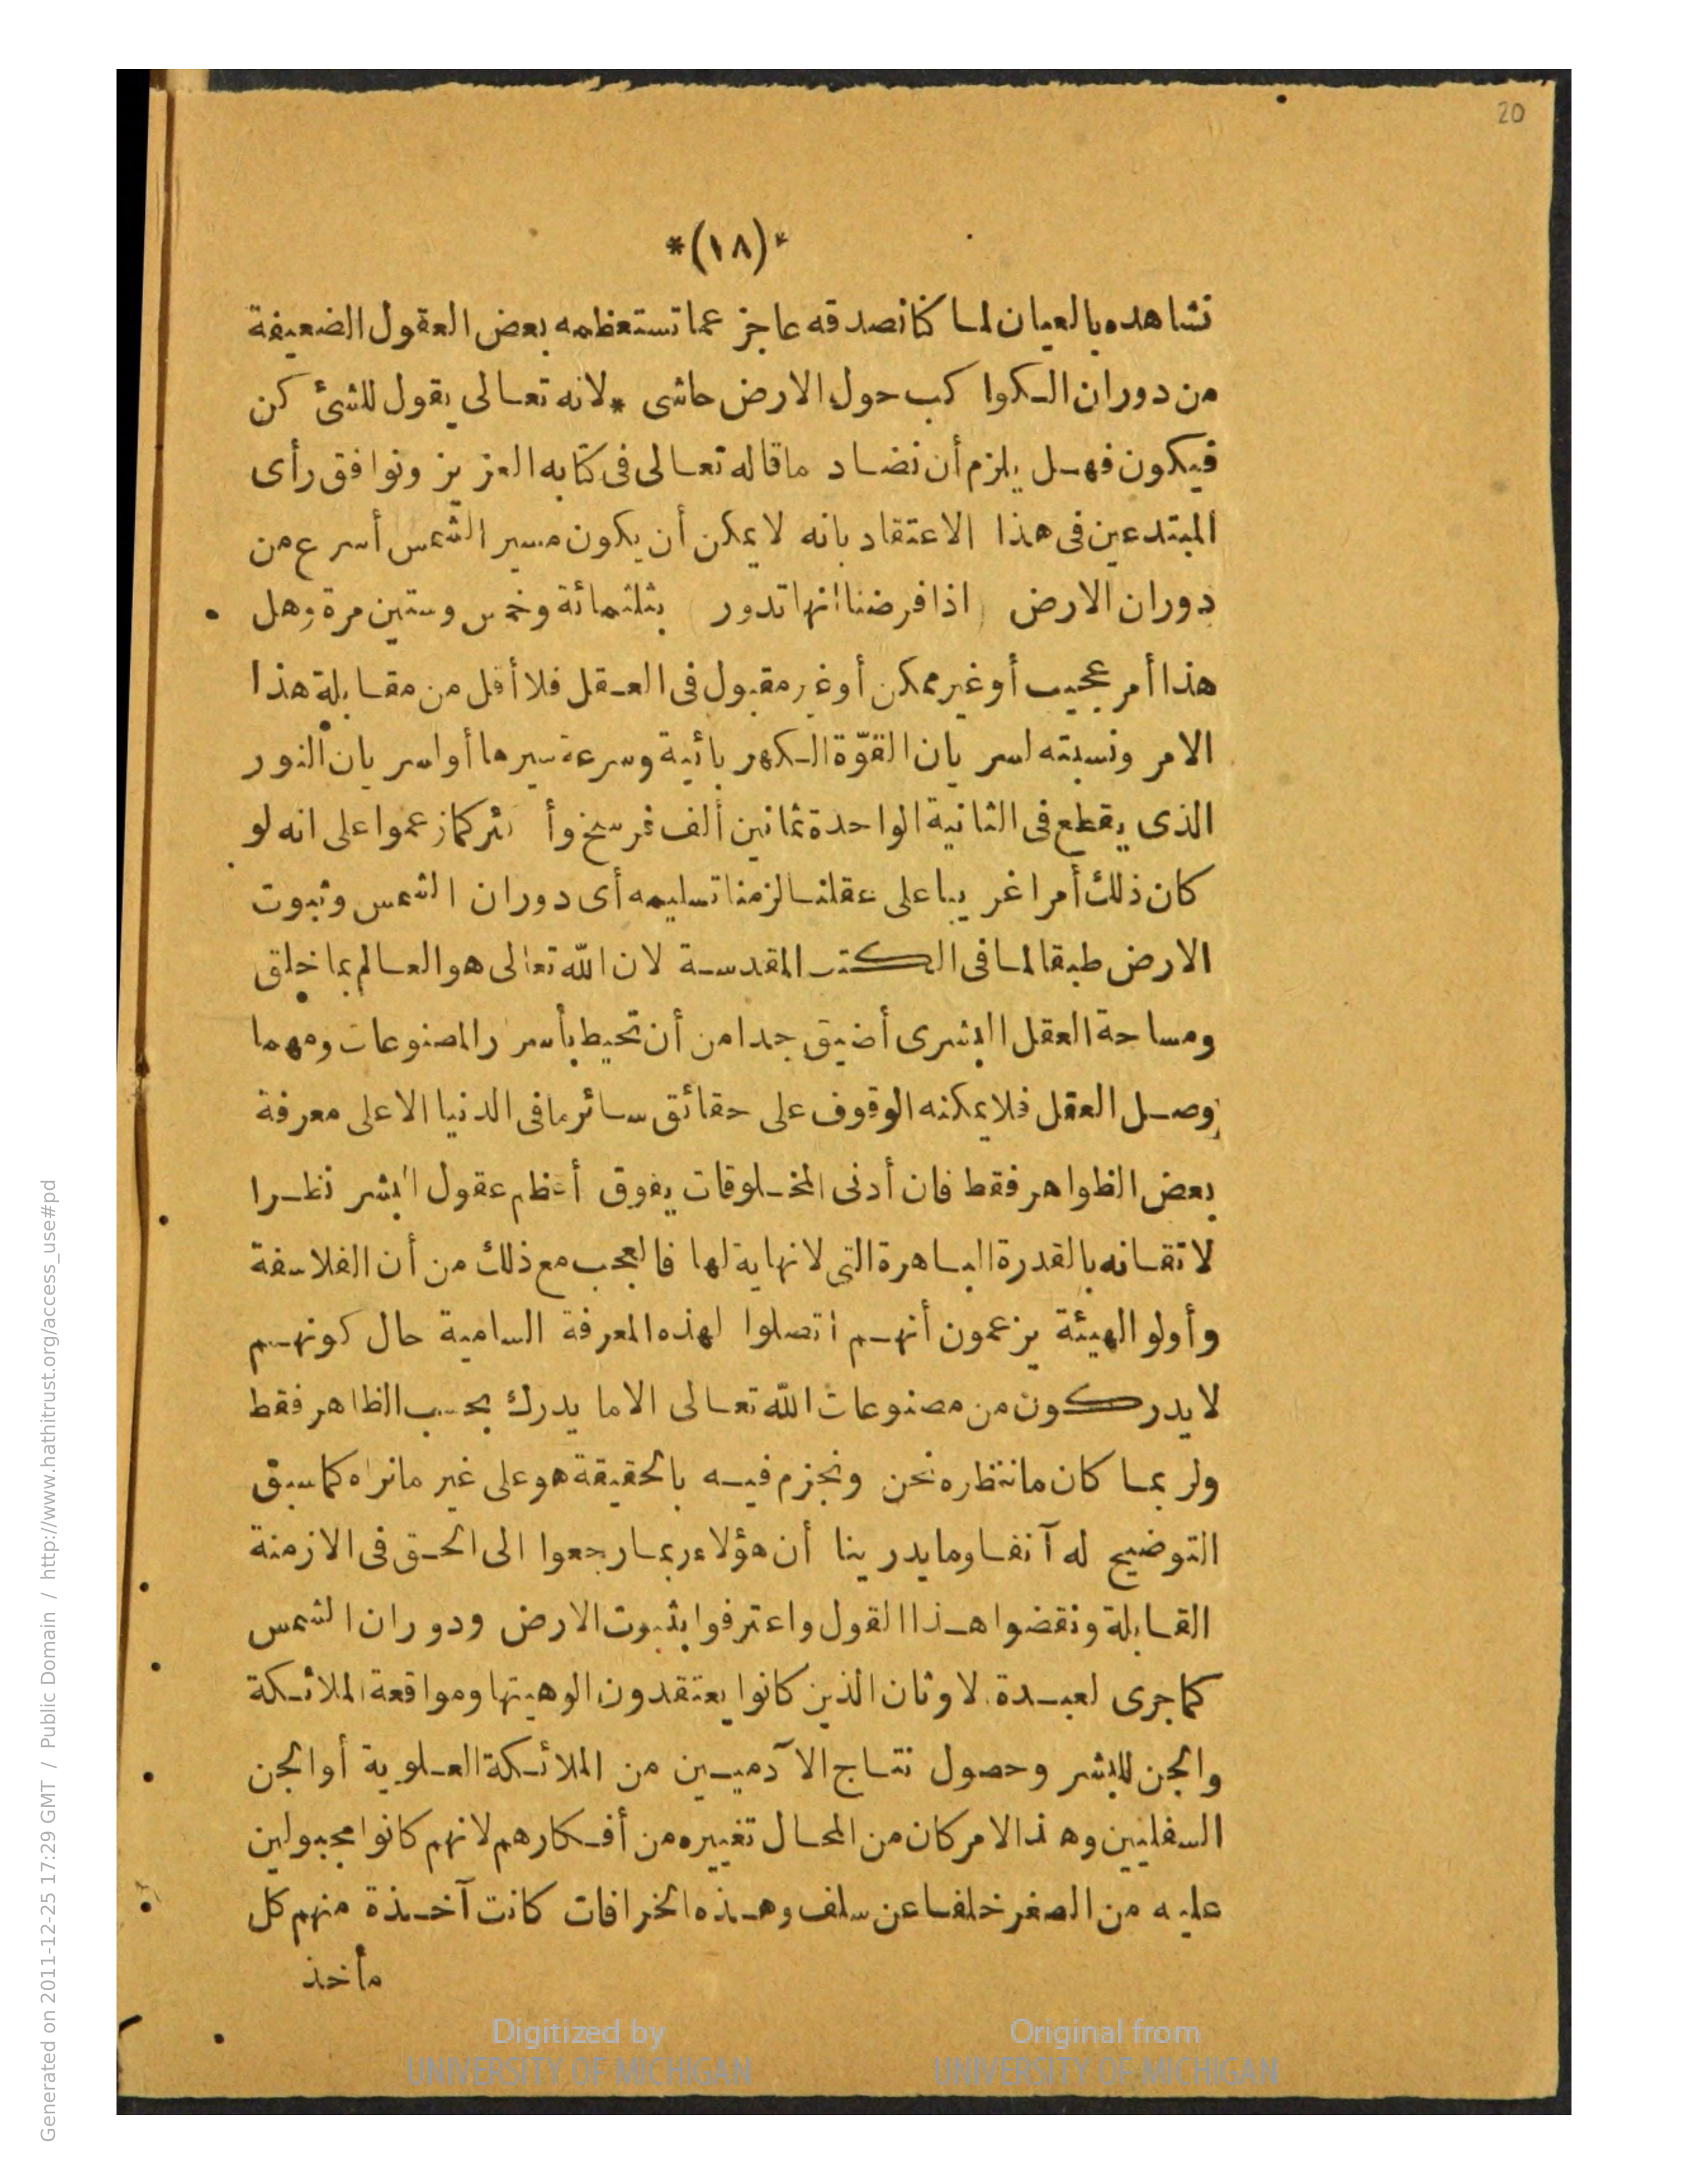 20
*(١٨)*
نشاهده بالعيان لما كنا نصدقه عاجز عما تستعظمه بعض العقول الضعيفة
من دوران الكواكب حول الارض حاشى * لانه تعالى يقول للشئ كن
فيكون فهل يلزم أن نضاد ما قاله تعالى فى كتابه العزيز ونوافق رأى
المبتدعين فى هذا الاعتقاد بانه لا يمكن أن يكون مسير الشمس أسرع من
دوران الارض اذا فرضنا انها تدور بثلثمائة وخمس وستين مرة وهل
هذا أمر عجيب أو غير ممكن أو غير مقبول فى العقل فلا أقل من مقابلة هذا
الامر ونسبته لسريان القوّة الكهربائية وسرعة سيرها أو لسريان النور
الذى يقطع فى الثانية الواحدة ثمانين ألف فرسخ وأكثر كما زعموا على انه لو
كان ذلك أمرا غريبا على عقلنا لزمنا تسليمه أى دوران الشمس وثبوت
الارض طبقا لما فى الكتب المقدسة لان الله تعالى هو العالم بما خلق
ومساحة العقل البشرى أضيق جدا من أن تحيط بأسرار المصنوعات ومهما
وصل العقل فلا يمكنه الوقوف على حقائق سائر ما فى الدنيا الا على معرفة
بعض الظواهر فقط فان أدنى المخلوقات يفوق أعظم عقول البشر نظرا
لاتقانه بالقدرة الباهرة التى لا نهاية لها فالعجب مع ذلك من أن الفلاسفة
وأولو الهيئة يزعمون أنهم اتصلوا لهذه المعرفة السامية حال كونهم
لا يدركون من مصنوعات الله تعالى الا ما يدرك بحسب الظاهر فقط
ولربما كان ما ننتظره نحن ونجزم فيه بالحقيقة هو على غير ما نراه كما سبق
التوضيح له آنفا وما يدرينا أن هؤلاء ربما رجعوا الى الحق فى الازمنة
القابلة ونقضوا هذا القول واعترفوا بثبوت الارض ودوران الشمس
كما جرى لعبدة الاوثان الذين كانوا يعتقدون الوهيتها ومواقعة الملائكة
والجن للبشر وحصول نتاج الآدميين من الملائكة العلوية أو الجن
السفليين وهذا الامر كان من المحال تغييره من أفكارهم لانهم كانوا مجبولين
عليه من الصغر خلفا عن سلف وهذه الخرافات كانت آخذة منهم كل
مأخذ
Digitized by
UNIVERSITY OF MICHIGAN
Original from
UNIVERSITY OF MICHIGAN
Generated on 2011-12-25 17:29 GMT / Public Domain / http://www.hathitrust.org/access_use#pd